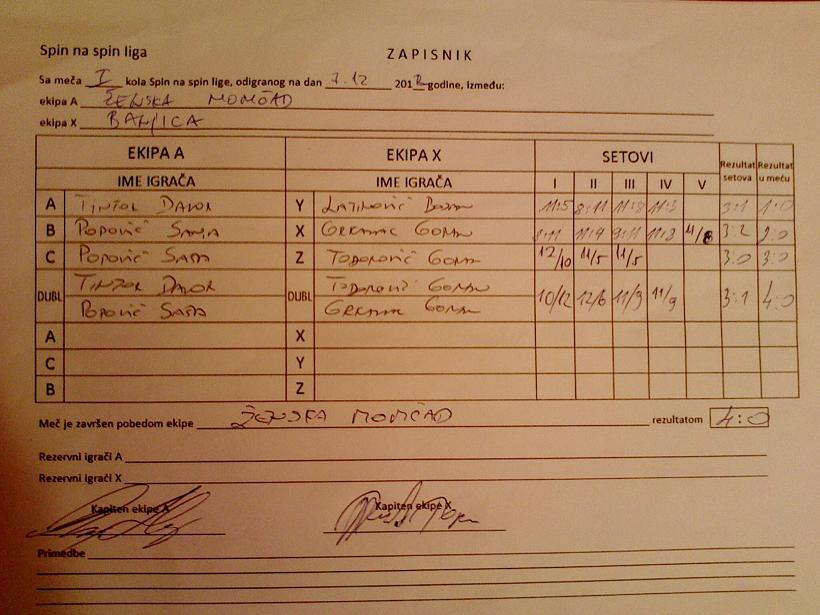 Spin na spin liga
ZAPISNIK
Sa meča I kola Spin na spin lige, odigranog na dan 7.12 2012 godine, između:
ekipa A ŽENSKA MOMČAD
ekipa X BANJICA
EKIPA A EKIPA X SETOVI Rezultat setova Rezultat u meču
IME IGRAČA IME IGRAČA I II III IV V
A TINTOR DAVOR Y 11:5 8:11 11:8 11:3 3:1 1:0
B POPOVIĆ SANJA X GRKINIĆ GORAN 8:11 11:9 9:11 11:3 11/8 3:2 2:0
C POPOVIĆ SAŠA Z TODOROVIĆ GORAN 12/10 11/5 11/5 3:0 3:0
DUBL TINTOR DAVOR DUBL TODOROVIĆ GORAN
POPOVIĆ SAŠA GRKINIĆ GORAN 10/12 12/6 11/9 11/9 3:1 4:0
A X
C Y
B Z
Meč je završen pobedom ekipe ŽENSKA MOMČAD rezultatom 4:0
Rezervni igrači A
Rezervni igrači X
Kapiten ekipe A Kapiten ekipe X
Primedbe